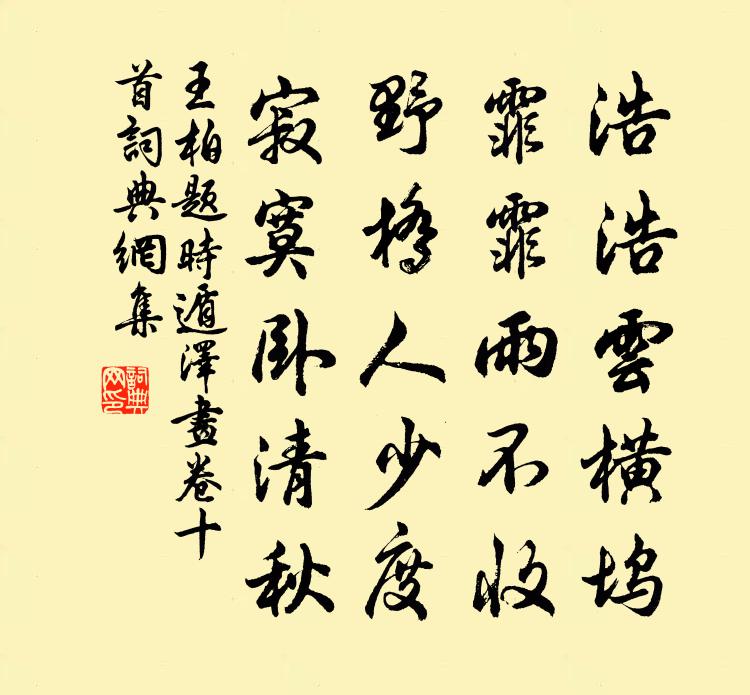 浩浩雲橫塢
霏霏雨不收
野橋人少度
寂寞臥清秋
王柏題時遁澤畫卷十
首詞典網集
詞典
网印